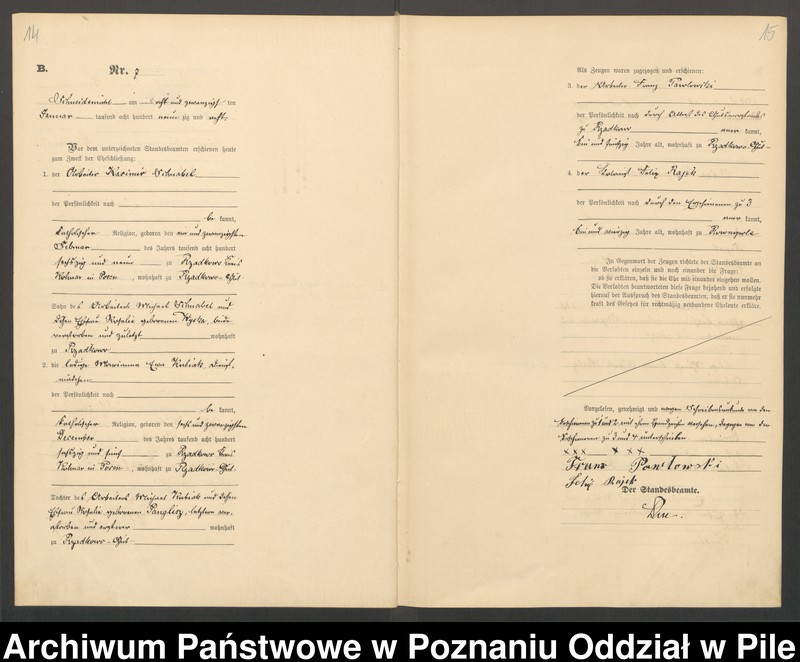 14
B. Nr. 7
Schneidemühl am acht und zwanzigsten
Januar tausend acht hundert neunzig und acht.
Vor dem unterzeichneten Standesbeamten erschienen heute
zum Zweck der Eheschließung:
1. der Arbeiter Kasimir Schnabel
der Persönlichkeit nach
be kannt,
katholischer Religion, geboren den zwanzigsten
Februar des Jahres tausend acht hundert
sechszig und neun zu Rzadkowo Kreis
Kolmar in Posen, wohnhaft zu Rzadkowo-Gut
Sohn des Arbeiters Michael Schnabel und
dessen Ehefrau Rosalie geborenen beide
verstorben und zuletzt wohnhaft
zu Rzadkowo
2. die ledige Marianna Eva Kubiak Dienst-
mädchen
der Persönlichkeit nach
be kannt,
katholischer Religion, geboren den sechs und zwanzigsten
December des Jahres tausend acht hundert
sechszig und fünf zu Rzadkowo Kreis
Kolmar in Posen, wohnhaft zu Rzadkowo-Gut
Tochter des Arbeiters Michael Kubiak und dessen
Ehefrau Rosalie geborenen letztere ver-
storben und ersterer wohnhaft
zu Rzadkowo-Gut
15
Als Zeugen waren zugezogen und erschienen:
3. der Arbeiter Franz Pawlowski
der Persönlichkeit nach durch Attest des
zu Rzadkowo aner kannt,
Jahre alt, wohnhaft zu Rzadkowo-Gut
4. der Felix Rajek
der Persönlichkeit nach durch den Erschienenen zu 3
aner kannt,
Jahre alt, wohnhaft zu
In Gegenwart der Zeugen richtete der Standesbeamte an
die Verlobten einzeln und nach einander die Frage:
ob sie erklären, daß sie die Ehe mit einander eingehen wollen.
Die Verlobten beantworteten diese Frage bejahend und erfolgte
hierauf der Ausspruch des Standesbeamten, daß er sie nunmehr
kraft des Gesetzes für rechtmäßig verbundene Eheleute erkläre.
Vorgelesen, genehmigt und wegen Schreibensunkunde von den
Erschienenen zu 1 und 2 mit ihren Handzeichen versehen, dagegen von den
Erschienenen zu 3 und 4 unterschrieben
××× ×××
Franz Pawlowski
Rajek
Der Standesbeamte.
Archiwum Państwowe w Poznaniu Oddział w Pile